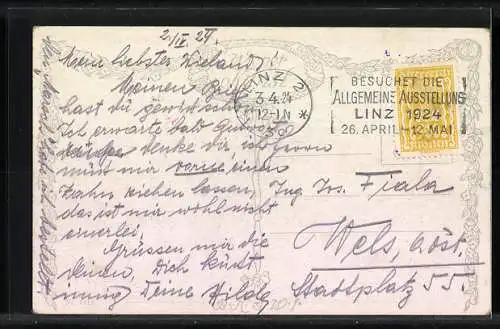 2/IV. 24.
Mein liebster Wieland!
Meinen Brief
hast du gewiss schon.
Ich erwarte bald
denke dir, ich
muss mir vorne einen
Zahn ziehen lassen,
das ist mir wohl nicht
einerlei.
Grüssen mir die
deinen, Dich küsst
innig Deine Hilde
LINZ 2
3.4.24
12-1N
*
BESUCHET DIE
ALLGEMEINE AUSSTELLUNG
LINZ 1924
26. APRIL-12. MAI.
Herrn
Ing Jos. Fiala
Wels, o.öst.
Stadtplatz 55.